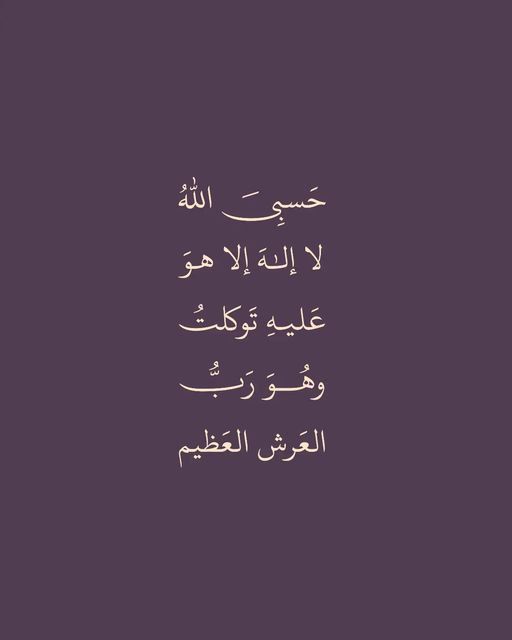 حَسبِيَ اللّٰهُ
لا إلـٰهَ إلا هوَ
عَليـهِ تَوكلتُ
وهُـوَ رَبُّ
العَرش العَظيم